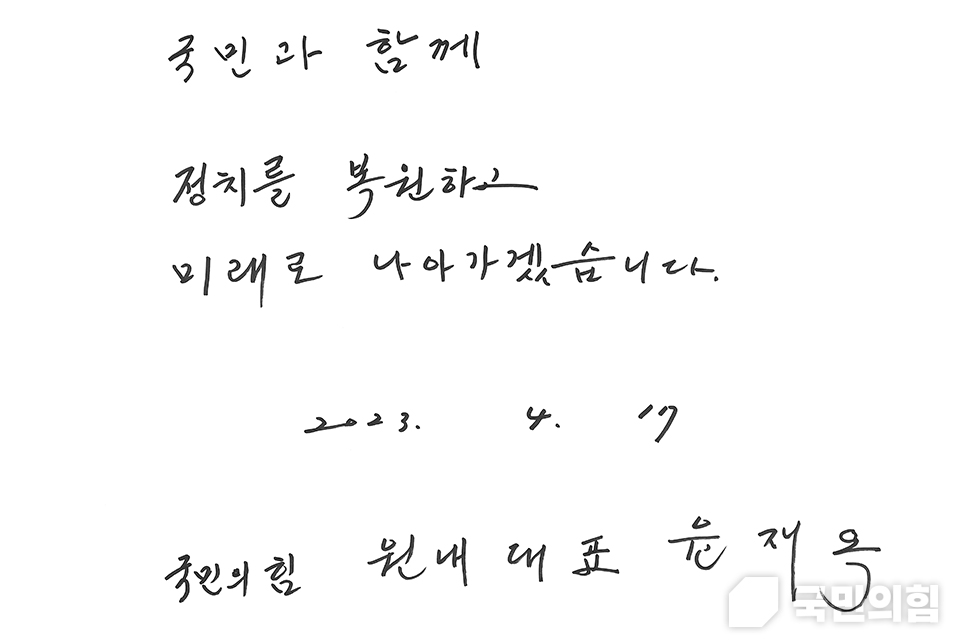 국민과 함께
정치를 복원하고
미래로 나아가겠습니다.
2023. 4. 17
국민의힘 원내대표 윤재옥
국민의힘